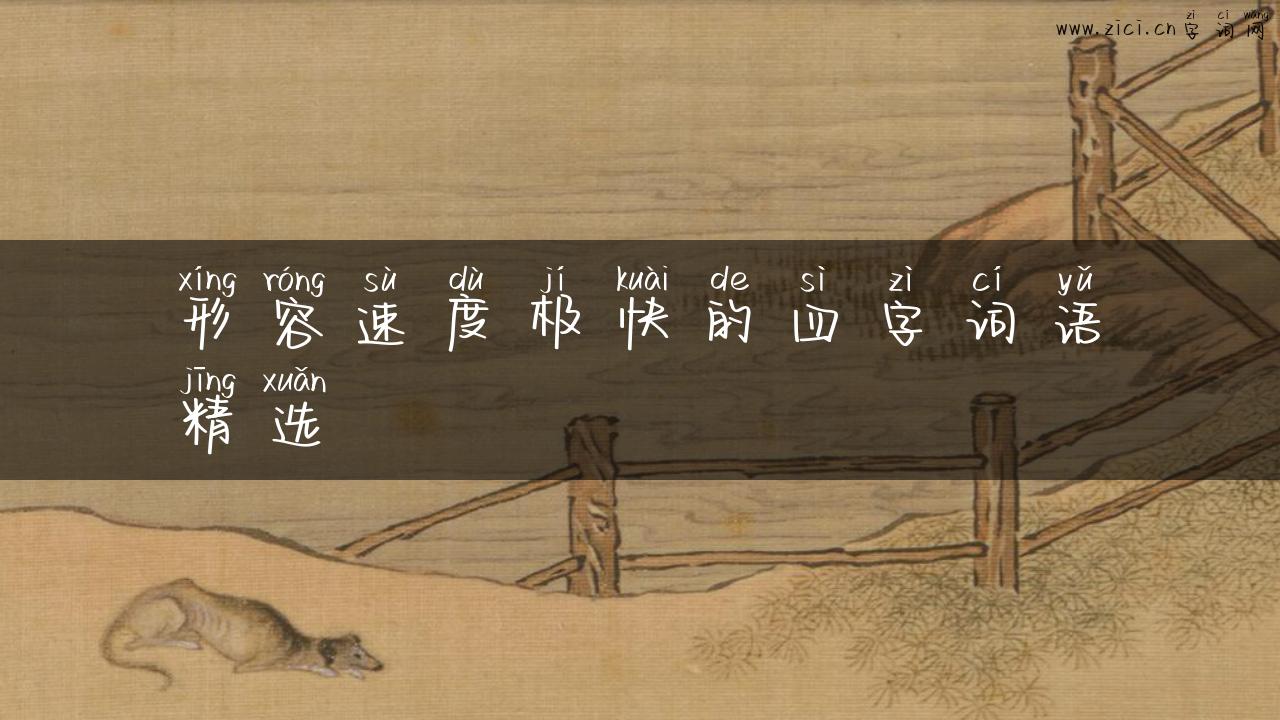 zì cí wǎng
www.zici.cn 字词网
xíng róng sù dù jí kuài de sì zì cí yǔ
形容速度极快的四字词语
jīng xuǎn
精选